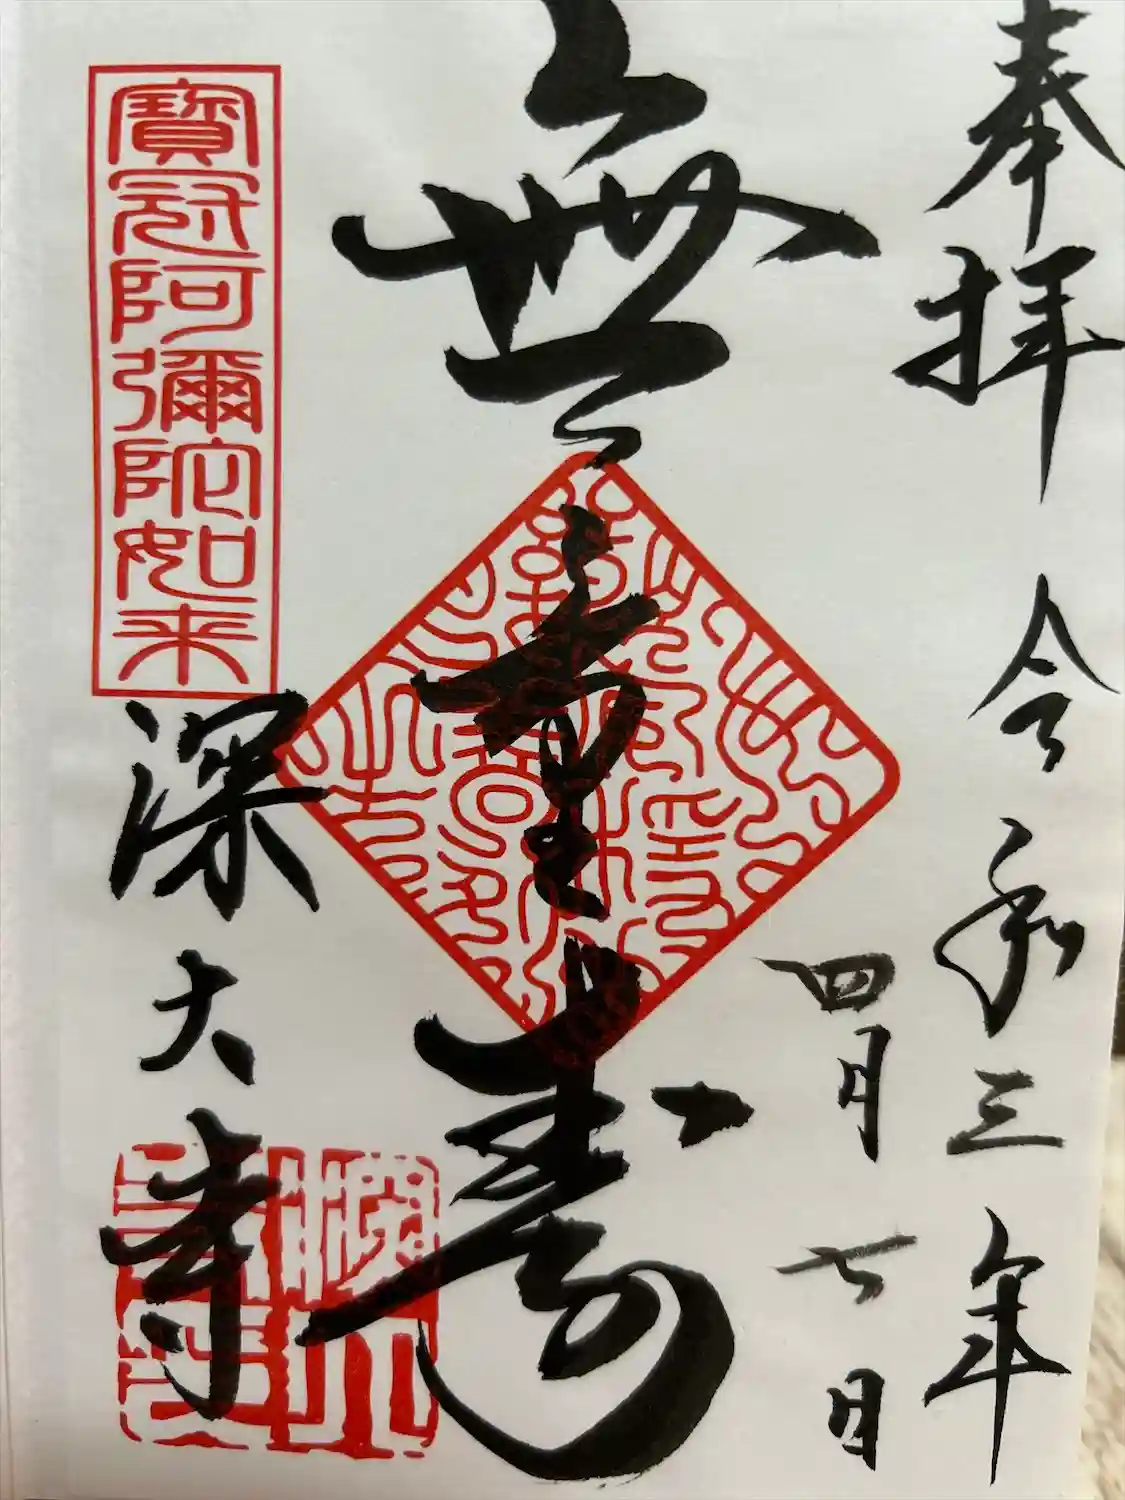 奉拝 令和三年
四月七日
無量寿
寶冠阿彌陀如来
深大寺